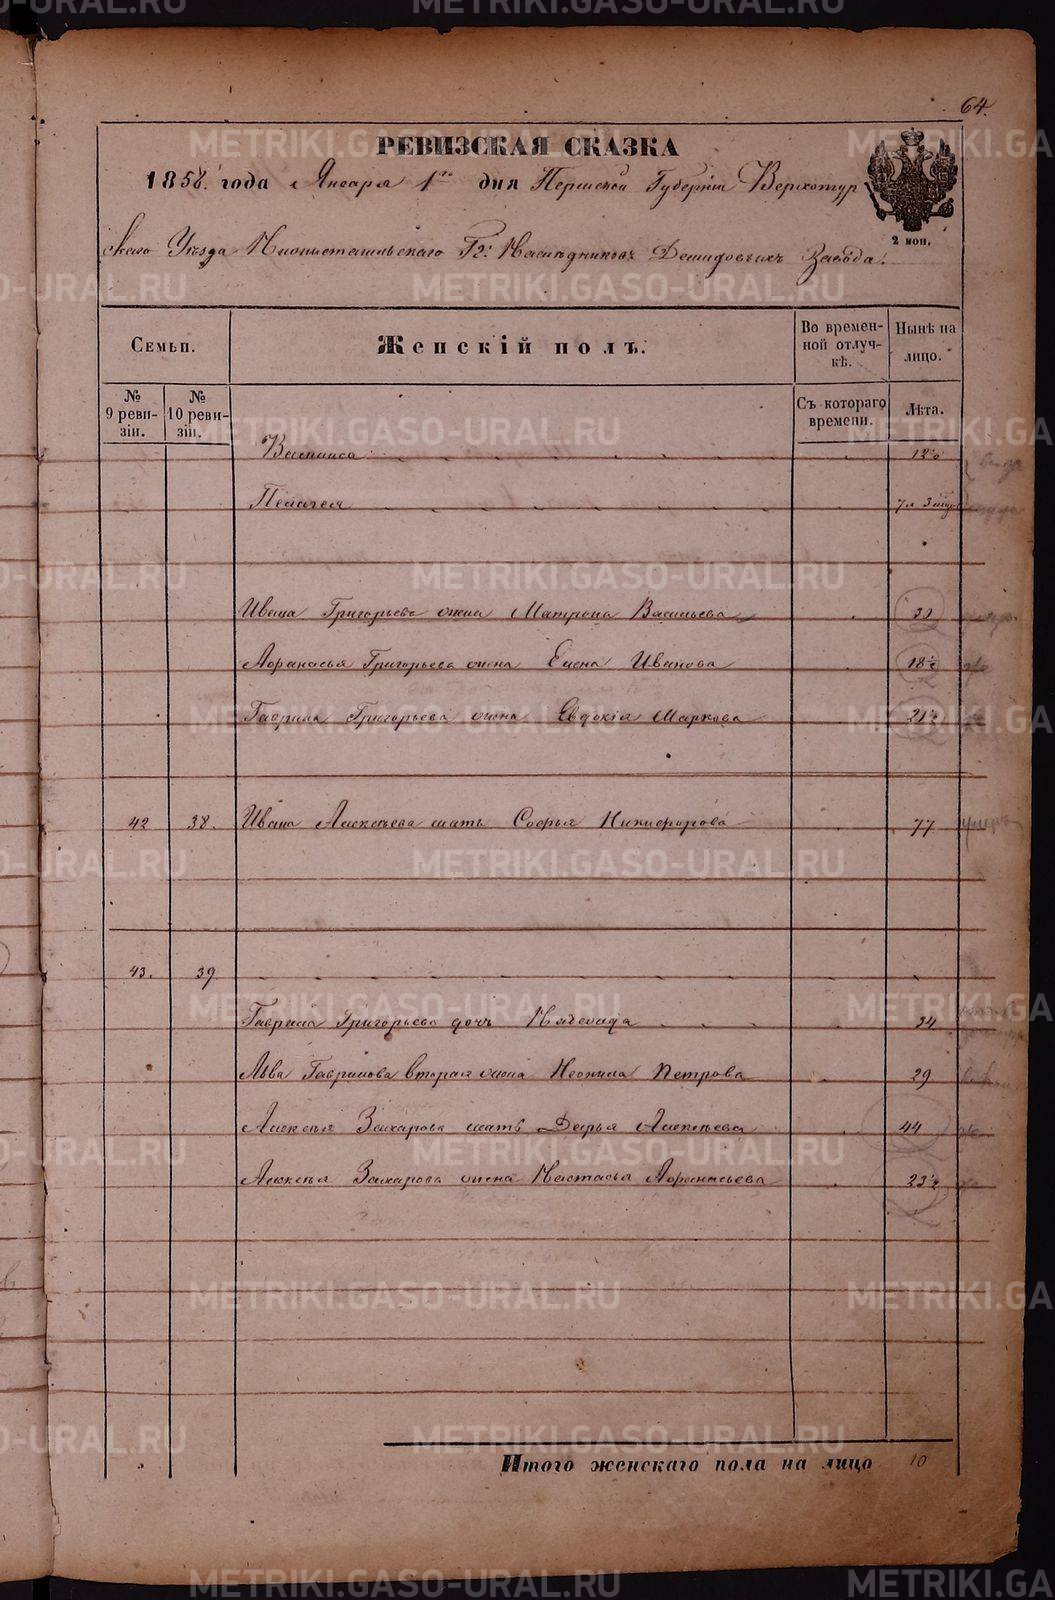 64.
РЕВИЗСКАЯ СКАЗКА
1858. года Января 1го дня Пермской Губернiи Верхотур
скаго Уѣзда Нижнетагильскаго Гг. Наслѣдниковъ Демидовыхъ Завода.
2 коп.
Семьи.
Женскiй полъ.
Во времен-
ной отлуч-
кѣ.
Нынѣ на
лицо.
№
9 реви-
зiи.
№
10 реви-
зiи.
Съ котораго
времени.
Лѣта.
Василиса 12½
Пелагея 7 л 3 мѣс
Ивана Григорьева жена Матрона Васильева 30
Афанасья Григорьева жена Елена Иванова 18½
Гаврила Григорьева жена Евдокiя Маркова 21½
42 38. Ивана Алексѣева мать Софья Никифорова 77
43. 39
Гаврила Григорьева дочь Надежда 34
Льва Гаврилова вторая жена Неонила Петрова 29
Алексѣя Захарова мать Дарья Алексѣева 44
Алексѣя Захарова жена Настасья Афанасьева 23½
Итого женскаго пола на лицо 10
METRIKI.GASO-URAL.RU